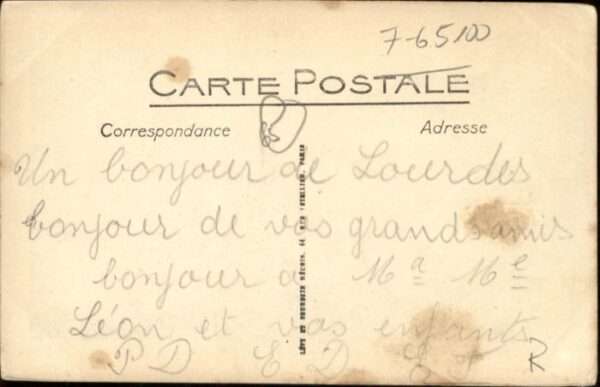 7-65100
CARTE POSTALE
Correspondance
Adresse
65
Un bonjour de Lourdes
bonjour de vos grands amis
bonjour a Mᵃ Mᵉ
Léon et vos enfants
P D E D E F
R
PARIS